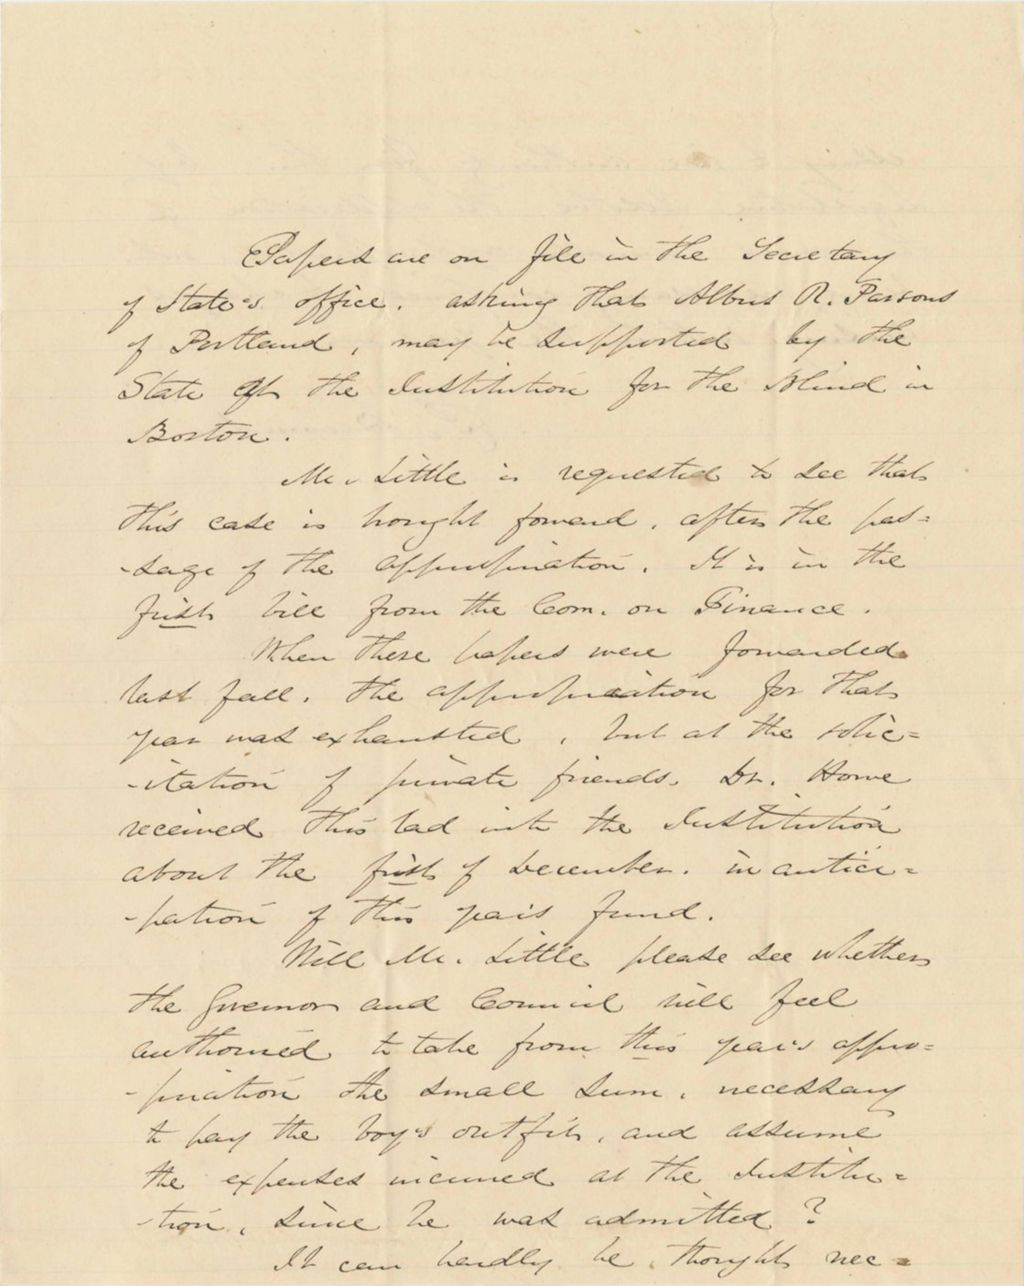 Papers are on file in the Secretary
of State's office, asking that Albus R. Parsons
of Portland, may be supported by the
State at the Institution for the Blind in
Boston.
Mr. Little is requested to see that
this case is brought forward, after the pas=
-sage of the appropriation. It is in the
first bill from the Com. on Finance.
When these papers were forwarded
last fall, the appropriation for that
year was exhausted, but at the solic=
-itation of private friends, Dr. Howe
received this lad into the Institution
about the first of December, in antici=
-pation of this year's fund.
Will Mr. Little please see whether
the Governor and Council will feel
authorized to take from this year's appro=
-priation the small sum, necessary
to pay the boy's outfit, and assume
the expenses incurred at the Institu=
-tion, since he was admitted?
It can hardly be thought nec=